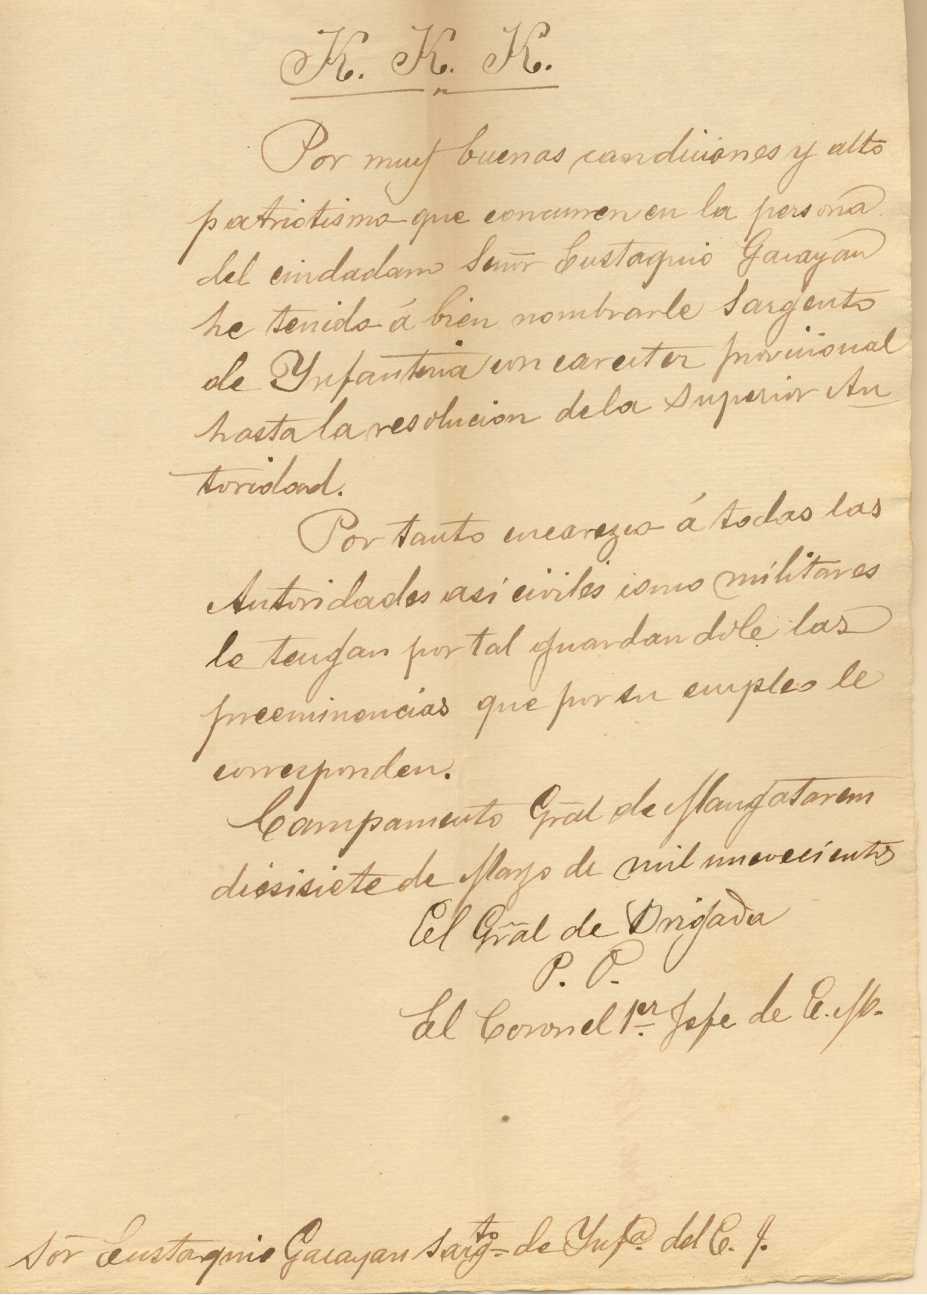 K. K. K.
Por muy buenas condiciones y alto
patriotismo que concurren en la persona
del ciudadano Señor Eustaquio Gacayan
he tenido á bien nombrarle Sargento
de Ynfanteria con caracter provicional
hasta la resolucion de la Superior Au-
toridad.
Por tanto encarezco á todas las
Autoridades asi civiles como militares
le tengan por tal guardandole las
preeminencias que por su empleo le
corresponden.
Campamento Gral de Mangatarem
diesisiete de Mayo de mil nuevecientos
El Gral de Brigada
P. O.
El Coronel 1er Jefe de E. M.
Sor Eustaquio Gacayan Sargto de Ynfa. del E. F.